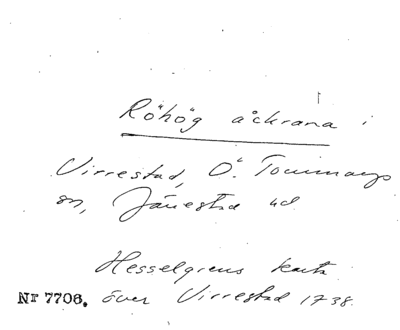 Röhög åckrana i
Virrestad, Ö. Tommarps
sn, Järrestad hd
Hesselgrens karta
Nr 7706. över Virrestad 1738.